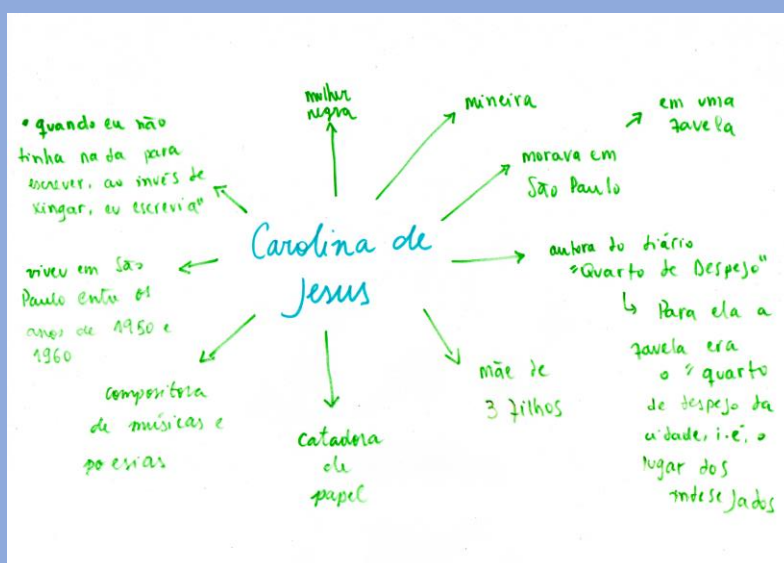 Carolina de
Jesus
mulher
negra
mineira
morava em
São Paulo
em uma
favela
autora do diário
"Quarto de Despejo"
↳ Para ela a
favela era
o "quarto
de despejo da
cidade, i.é, o
lugar dos
indesejados
mãe de
3 filhos
catadora
de
papel
compositora
de músicas e
poesias
viveu em São
Paulo entre os
anos de 1950 e
1960
• quando eu não
tinha nada para
escrever, ao invés de
xingar, eu escrevia"